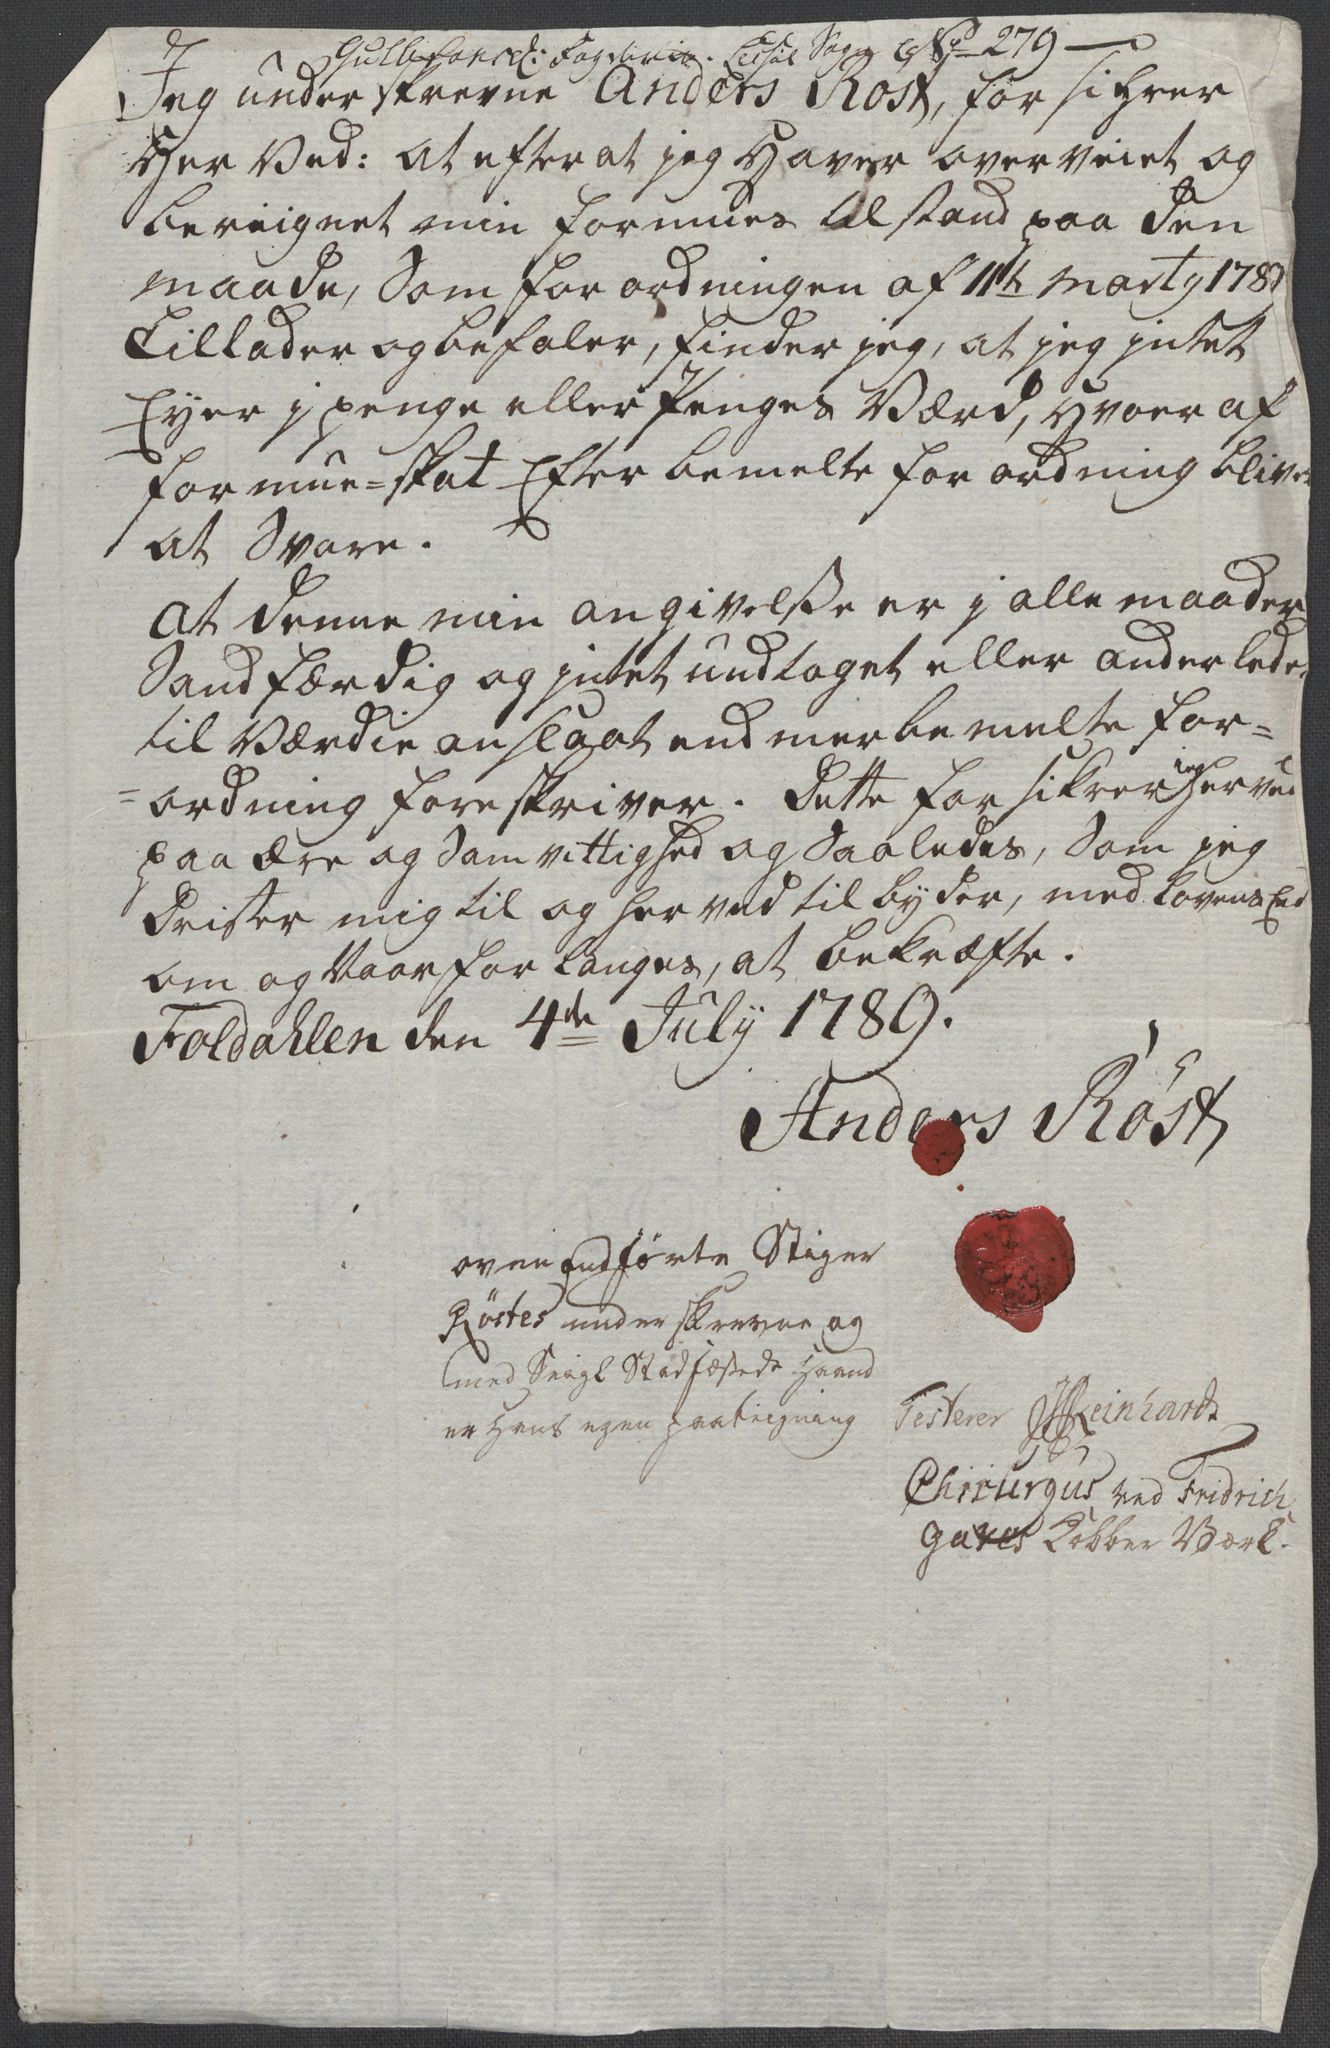 Gulbrandsd: Fogderie. Lessøe Sogn No 279
Jeg underskrevne Anders Röst, forsikrer
Her Ved: at efterat jeg Haver overveiet og
bereignet min formues tilstand paa den
maade, Som forordningen af 11te Marty 1789
tillader og befaler, finder jeg, at jeg jntet
Eyer j penge eller Penges Værd, Hvoraf
formue=skat Efter bemelte forordning bliver
at Svare.
At denne min angivelsse er j alle maader
Sandfærdig og jntet undtaget eller anderledes
til Værdie anslaat end merbemelte for=
=ordning foreskriver. Dette forsikrer jeg herved
paa ære og Samvittighed og Saaledes, Som jeg
drister mig til og herved tilbyder, med Lovens Eed
om og naar forlanges, at bekræfte.
Foldahlen den 4de July 1789.
Anders Röst
ovenanførte Stiger
Röstes underskrevne og
med Seigl Stadfæstede Haand
er Hans egen paategning
Testerer Reinhardt
Chirurgus ved Fridrich
Gaves Kobber Værk.